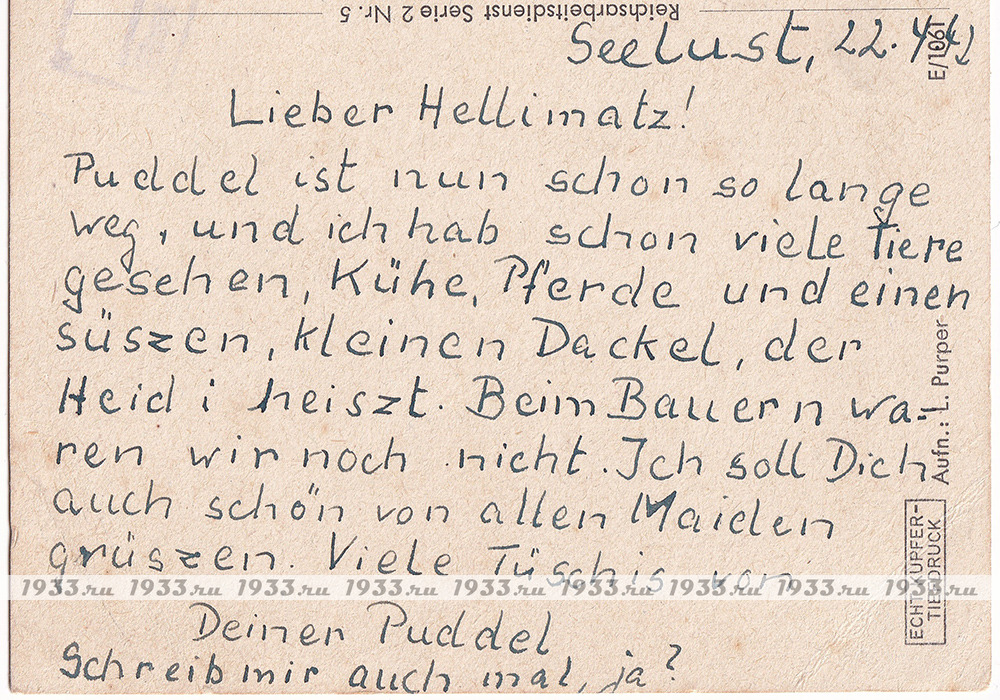 Reichsarbeitsdienst Serie 2 Nr. 5
Seelust, 22.4.42
Lieber Hellimatz!
Puddel ist nun schon so lange
weg, und ich hab schon viele Tiere
gesehen, Kühe, Pferde und einen
süszen, kleinen Dackel, der
Heidi heiszt. Beim Bauern wa-
ren wir noch nicht. Ich soll Dich
auch schön von allen Maiden
grüszen. Viele Tüschis von
1933.ru 1933.ru 1933.ru 1933.ru 1933.ru 1933.ru 1933.ru 1933.ru 1933.ru
Deiner Puddel
Schreib mir auch mal, ja?
E/1061
Aufn.: L. Purper
ECHT KUPFER-
TIEFDRUCK